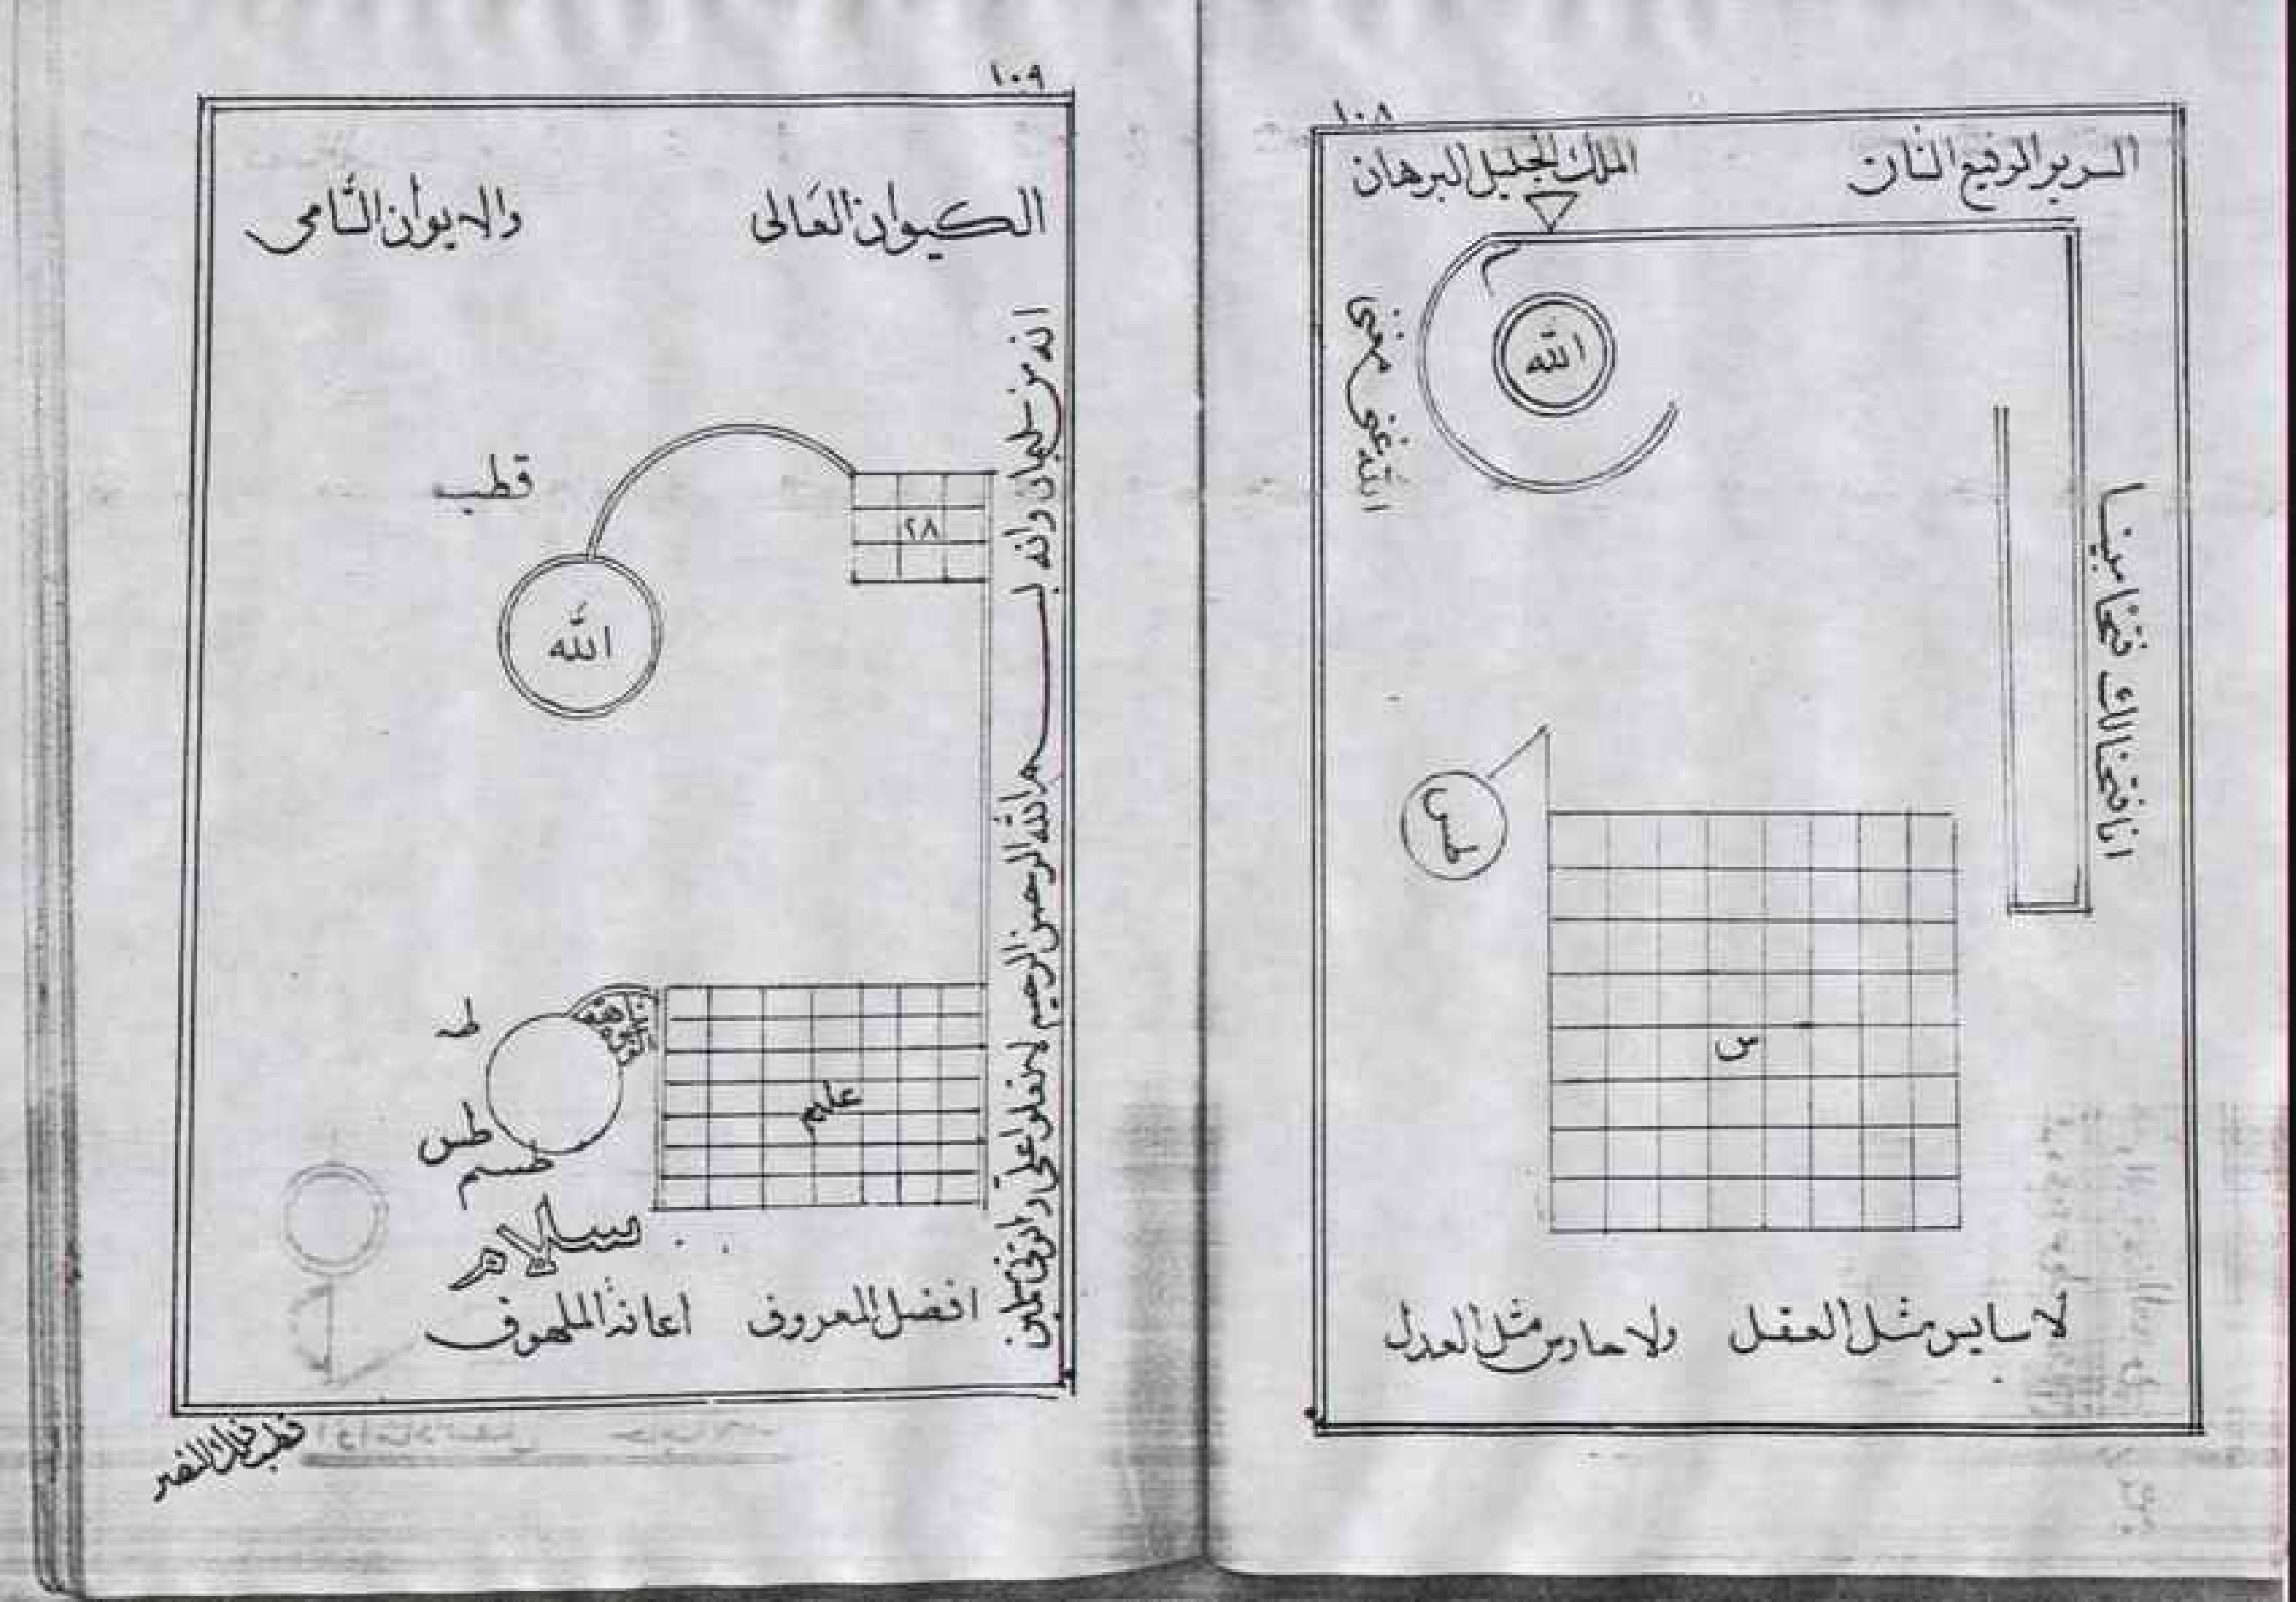 ١٠٨
السرير الرفيع الشان
الملك الجليل البرهان
الله
الله غنى مغنى
انا فتحنا لك فتحا مبينا
طس
س
لا سايس مثل العقل
ولا حارس مثل العدل
١٠٩
الكيوان العالى
والايوان السامى
انه من سليمان وانه بسم الله الرحمن الرحيم لا تعلوا على واتونى مسلمين
قطب
٢٨
الله
طه
عليم
طس
طسم
سلام
افضل المعروف
اعانة الملهوف
قطب فلك النصر